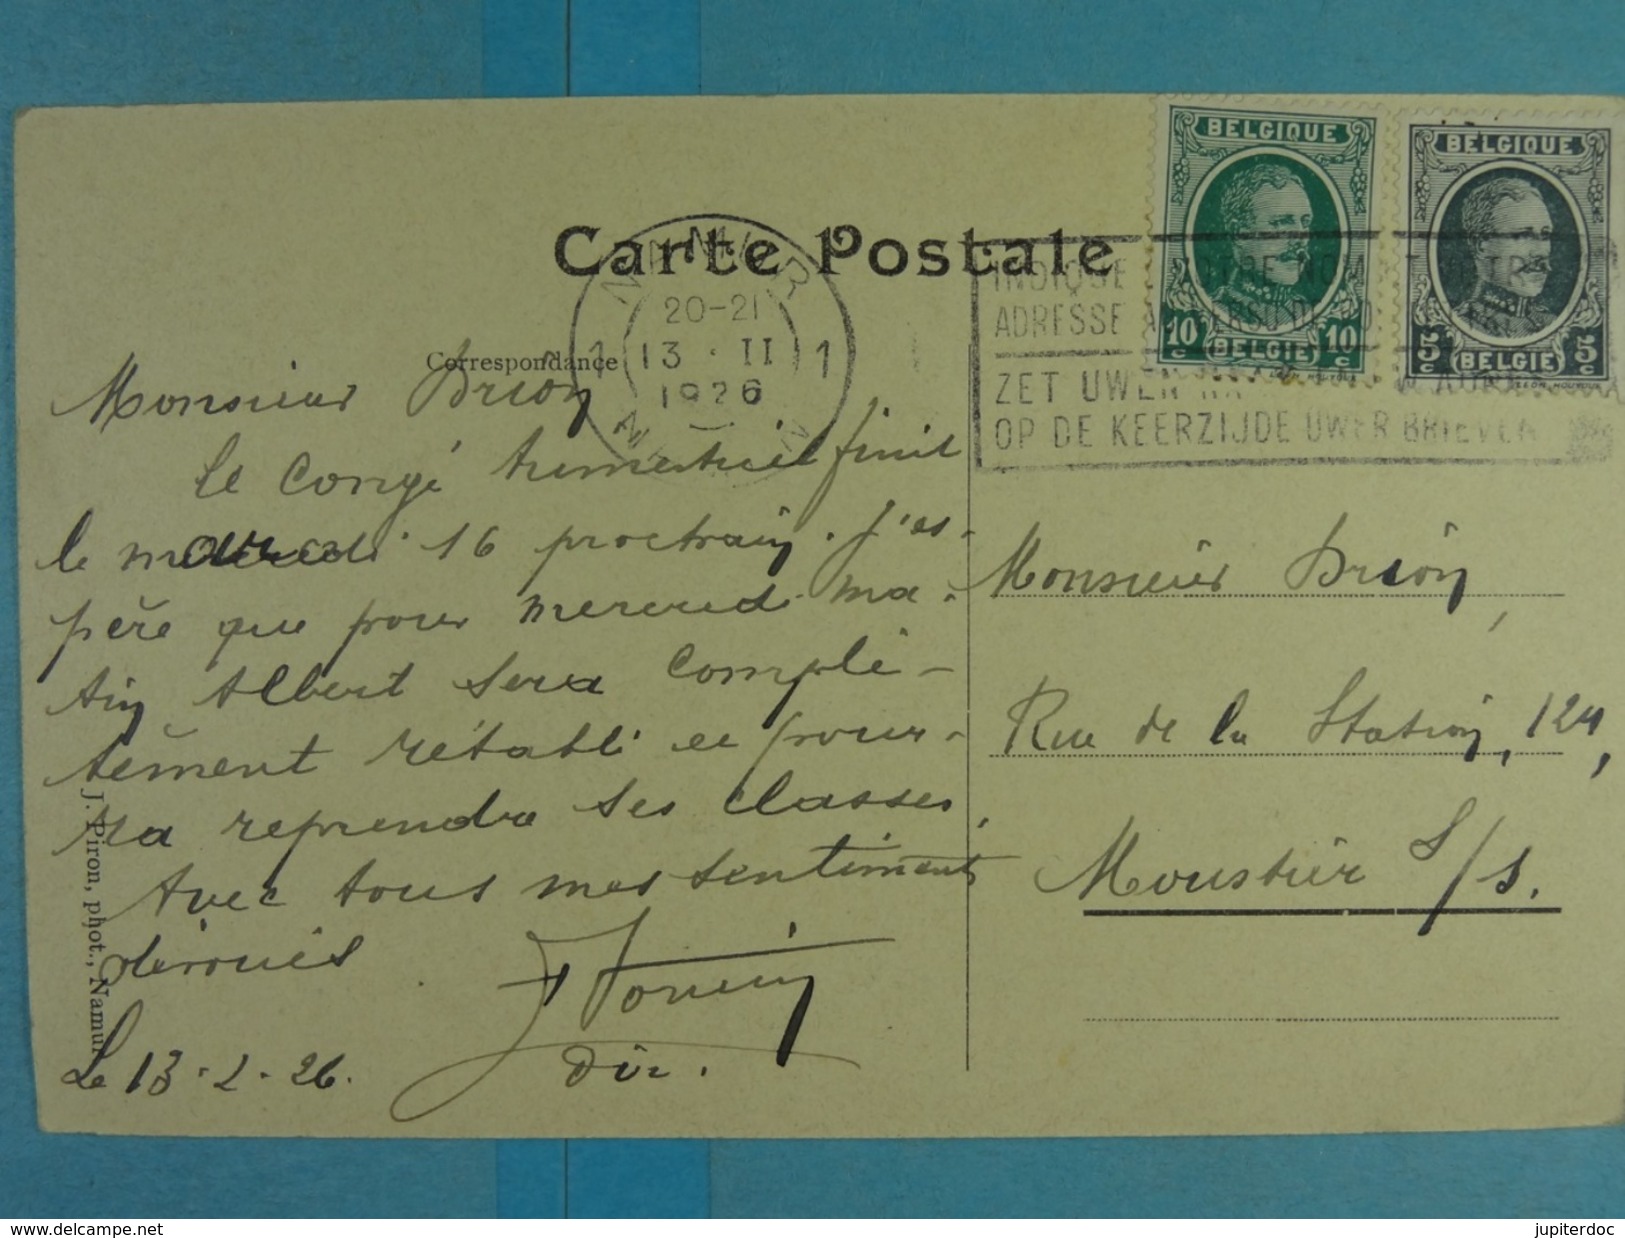 Carte Postale
Correspondance
NAMUR
20-21
1 13 · II 1
1926
BELGIQUE
10 c 10 c
BELGIE
BELGIQUE
5 c 5 c
BELGIE
INDIQUE
ADRESSE
ZET UWEN
OP DE KEERZIJDE UWER BRIEVEN
Monsieur Brion
Le Congé trimestriel finit
le mardi 16 prochain. J'es-
père que pour mercredi ma-
tin Albert sera complè-
tement rétabli et pour-
ra reprendre ses classes.
Avec tous mes sentiments
dévoués
Dir.
Le 13-2-26.
J. Piron, phot., Namur
Monsieur Brion,
Rue de la Station, 124,
Moustier S/S.
www.delcampe.net
jupiterdoc